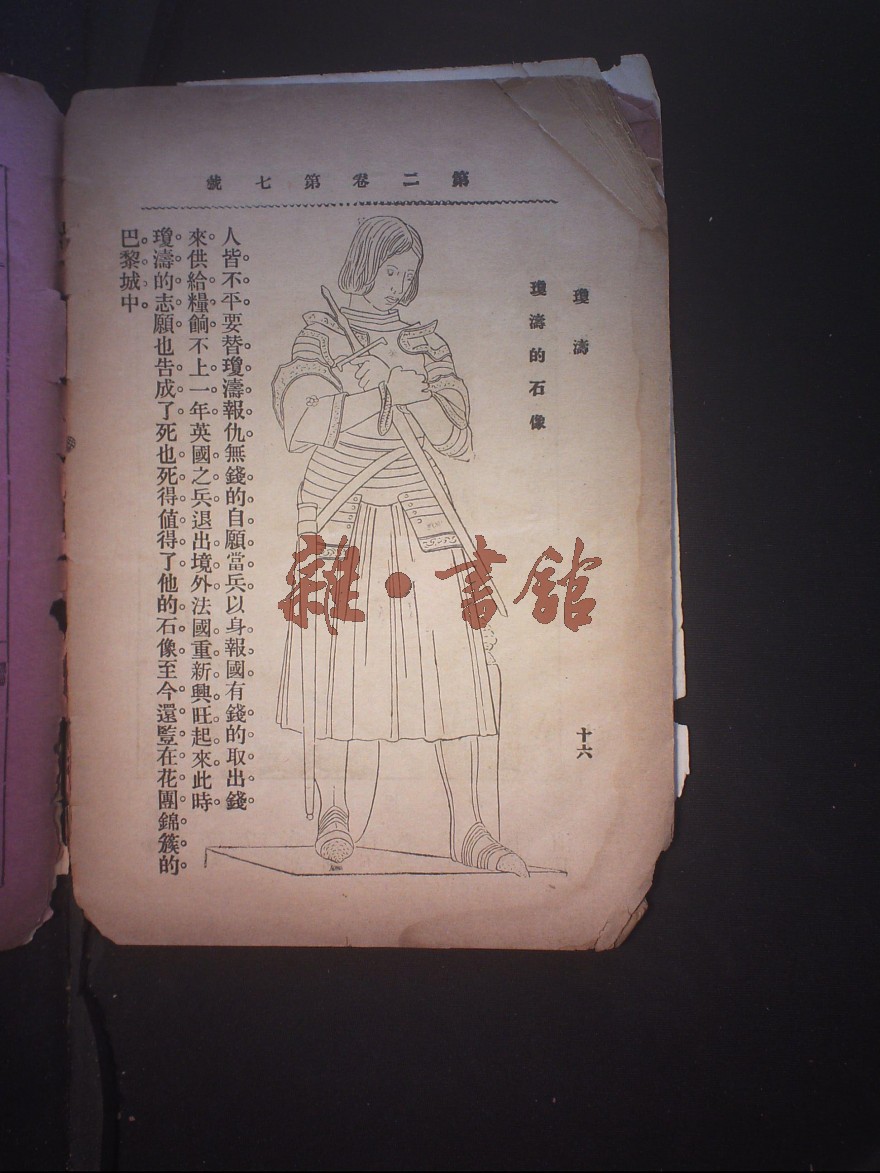 第二卷第七號
瓊濤
瓊濤的石像
十六
人皆不平要替瓊濤報仇無錢的自願當兵以身報國有錢的取出錢
來供給糧餉不上一年英國之兵退出境外法國重新興旺起來此時
瓊濤的志願也告成了死也死得值得了他的石像至今還豎在花團錦簇的
巴黎城中。
雜·書館